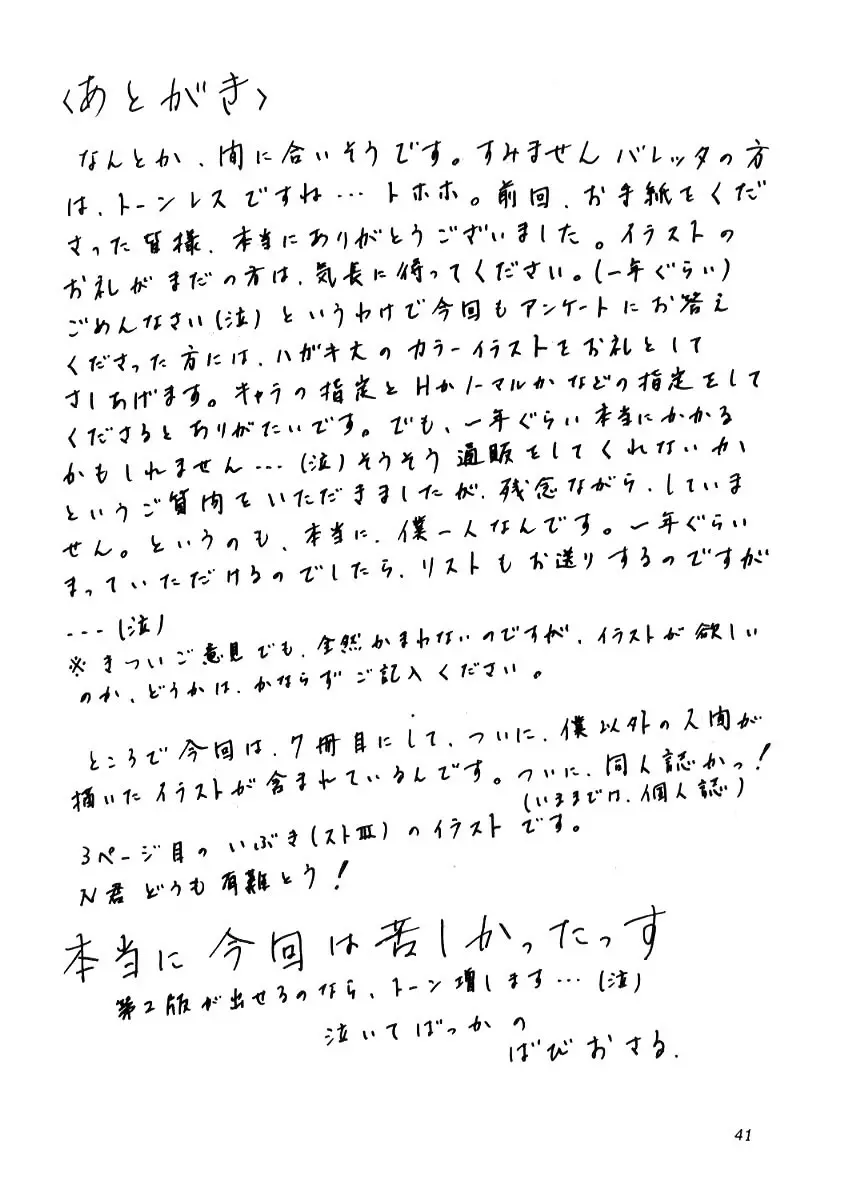 〈あとがき〉
なんとか、間に合いそうです。すみません バレッタの方
は、トーンレスですね… トホホ。前回、お手紙をくだ
さった皆様、本当にありがとうございました。イラストの
お礼がまだの方は、気長に待ってください。(一年ぐらい)
ごめんなさい(泣) というわけで今回もアンケートにお答え
くださった方には、ハガキ大のカラーイラストをお礼として
さしあげます。キャラの指定とHかノーマルかなどの指定をして
くださるとありがたいです。でも、一年ぐらい本当にかかる
かもしれません…(泣)そうそう通販をしてくれないか
というご質問をいただきましたが、残念ながら、していま
せん。というのも、本当に、僕一人なんです。一年ぐらい
まっていただけるのでしたら、リストもお送りするのですが
…(泣)
※きついご意見でも、全然かまわないのですが、イラストが欲しい
のか、どうかは、かならずご記入ください。
ところで今回は、7冊目にして、ついに、僕以外の人間が
描いたイラストが含まれているんです。ついに、同人誌かっ!
(いままでは、個人誌)
3ページ目のいぶき(ストⅢ)のイラストです。
N君どうも有難とう!
本当に今回は苦しかったっす
第2版が出せるのなら、トーン増します…(泣)
泣いてばっかの
ばびおさる.
41